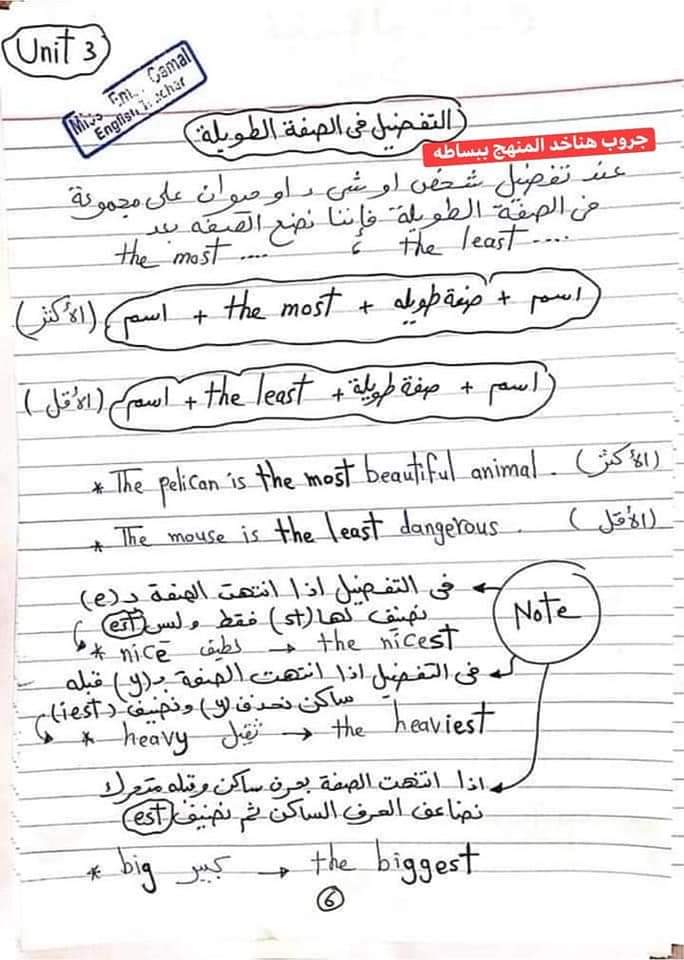 Unit 3
Miss Em.. Gamal
English Teacher
التفضيل فى الصفة الطويلة
جروب هناخد المنهج ببساطه
عند تفضيل شخص او شىء او حيوان على مجموعة
فى الصفة الطويلة فإننا نضع الصفه بعد
the most .... ، the least ....
(الأكثر) اسم + the most + صفة طويله + اسم
(الأقل) اسم + the least + صفة طويلة + اسم
* The pelican is the most beautiful animal. (الأكثر)
* The mouse is the least dangerous. (الأقل)
Note
فى التفضيل اذا انتهت الصفة بـ (e)
نضيف لها (st) فقط وليس est
* nice لطيف → the nicest
فى التفضيل اذا انتهت الصفة بـ (y) قبله
ساكن نحذف (y) ونضيف (iest)
* heavy ثقيل → the heaviest
اذا انتهت الصفة بحرف ساكن وقبله متحرك
نضاعف الحرف الساكن ثم نضيف est
* big كبير → the biggest
6